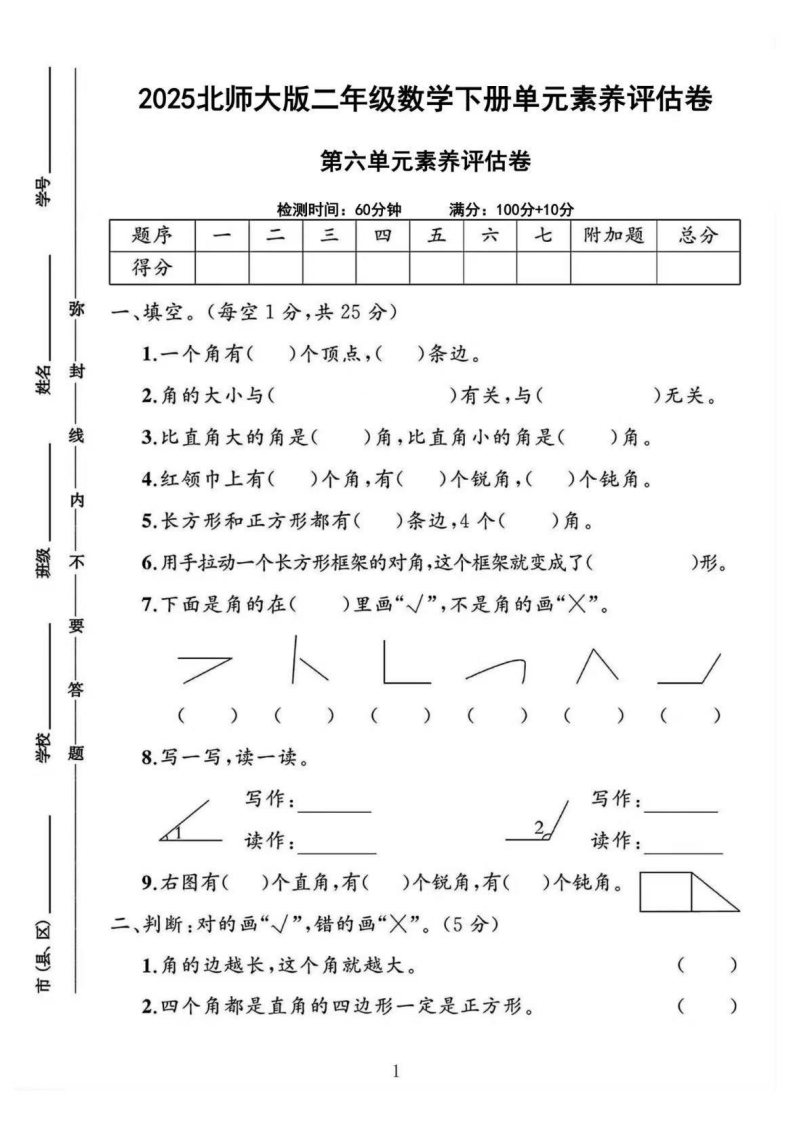 2025北师大版二年级数学下册单元素养评估卷
第六单元素养评估卷
检测时间：60分钟 满分：100分+10分
题序 一 二 三 四 五 六 七 附加题 总分
得分
一、填空。(每空 1 分,共 25 分)
1.一个角有( )个顶点,( )条边。
2.角的大小与( )有关,与( )无关。
3.比直角大的角是( )角,比直角小的角是( )角。
4.红领巾上有( )个角,有( )个锐角,( )个钝角。
5.长方形和正方形都有( )条边,4 个( )角。
6.用手拉动一个长方形框架的对角,这个框架就变成了( )形。
7.下面是角的在( )里画“√”,不是角的画“╳”。
( ) ( ) ( ) ( ) ( ) ( )
8.写一写,读一读。
1 写作:
读作:
2 写作:
读作:
9.右图有( )个直角,有( )个锐角,有( )个钝角。
二、判断:对的画“√”,错的画“╳”。(5 分)
1.角的边越长,这个角就越大。 ( )
2.四个角都是直角的四边形一定是正方形。 ( )
1
学号
姓名
班级
学校
市(县、区)
弥
封
线
内
不
要
答
题